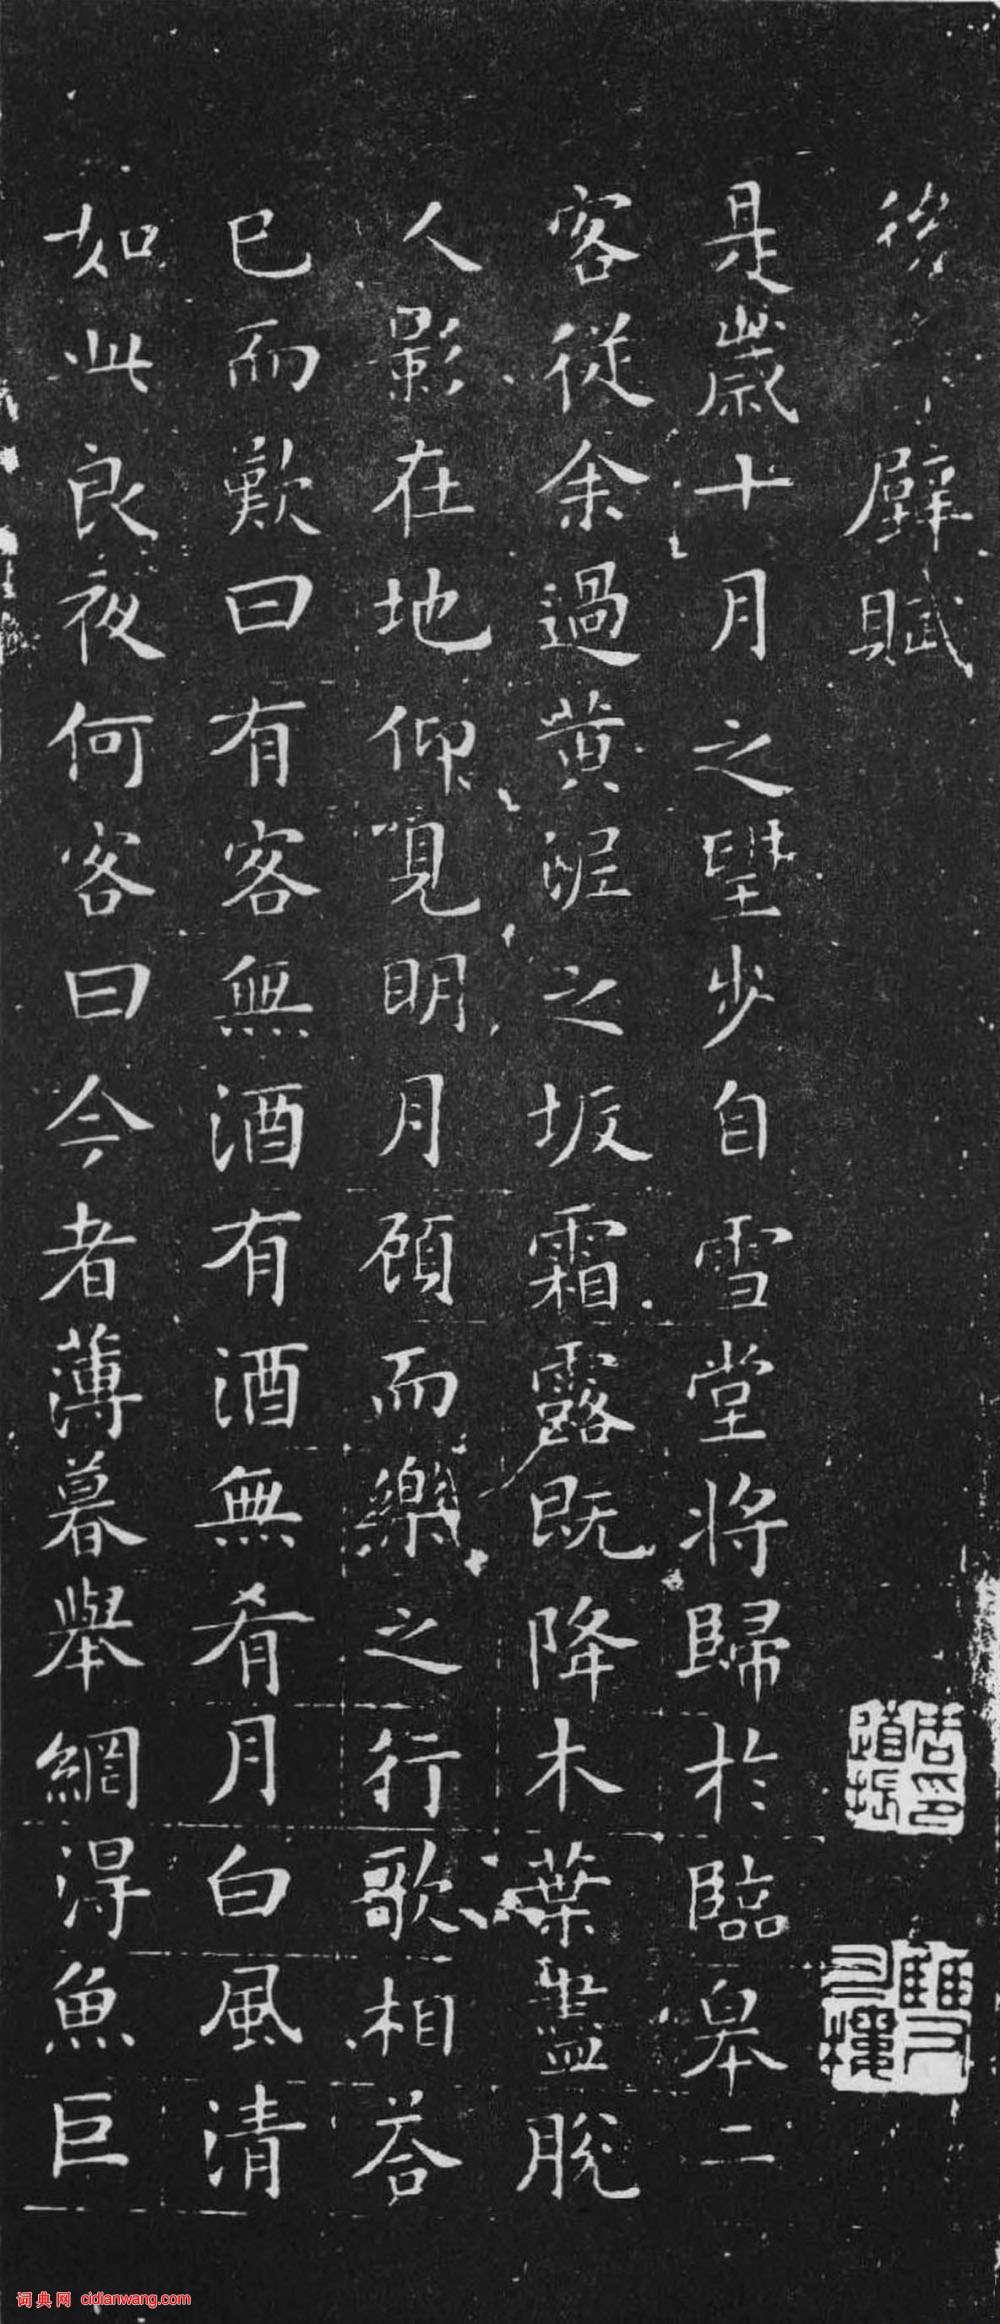 後 壁賦
是歲十月之望步自雪堂將歸於臨皋二
客從余過黃泥之坂霜露既降木葉盡脫
人影在地仰見明月顧而樂之行歌相荅
已而歎曰有客無酒有酒無肴月白風清
如此良夜何客曰今者薄暮舉網得魚巨
词典网 cidianwang.com